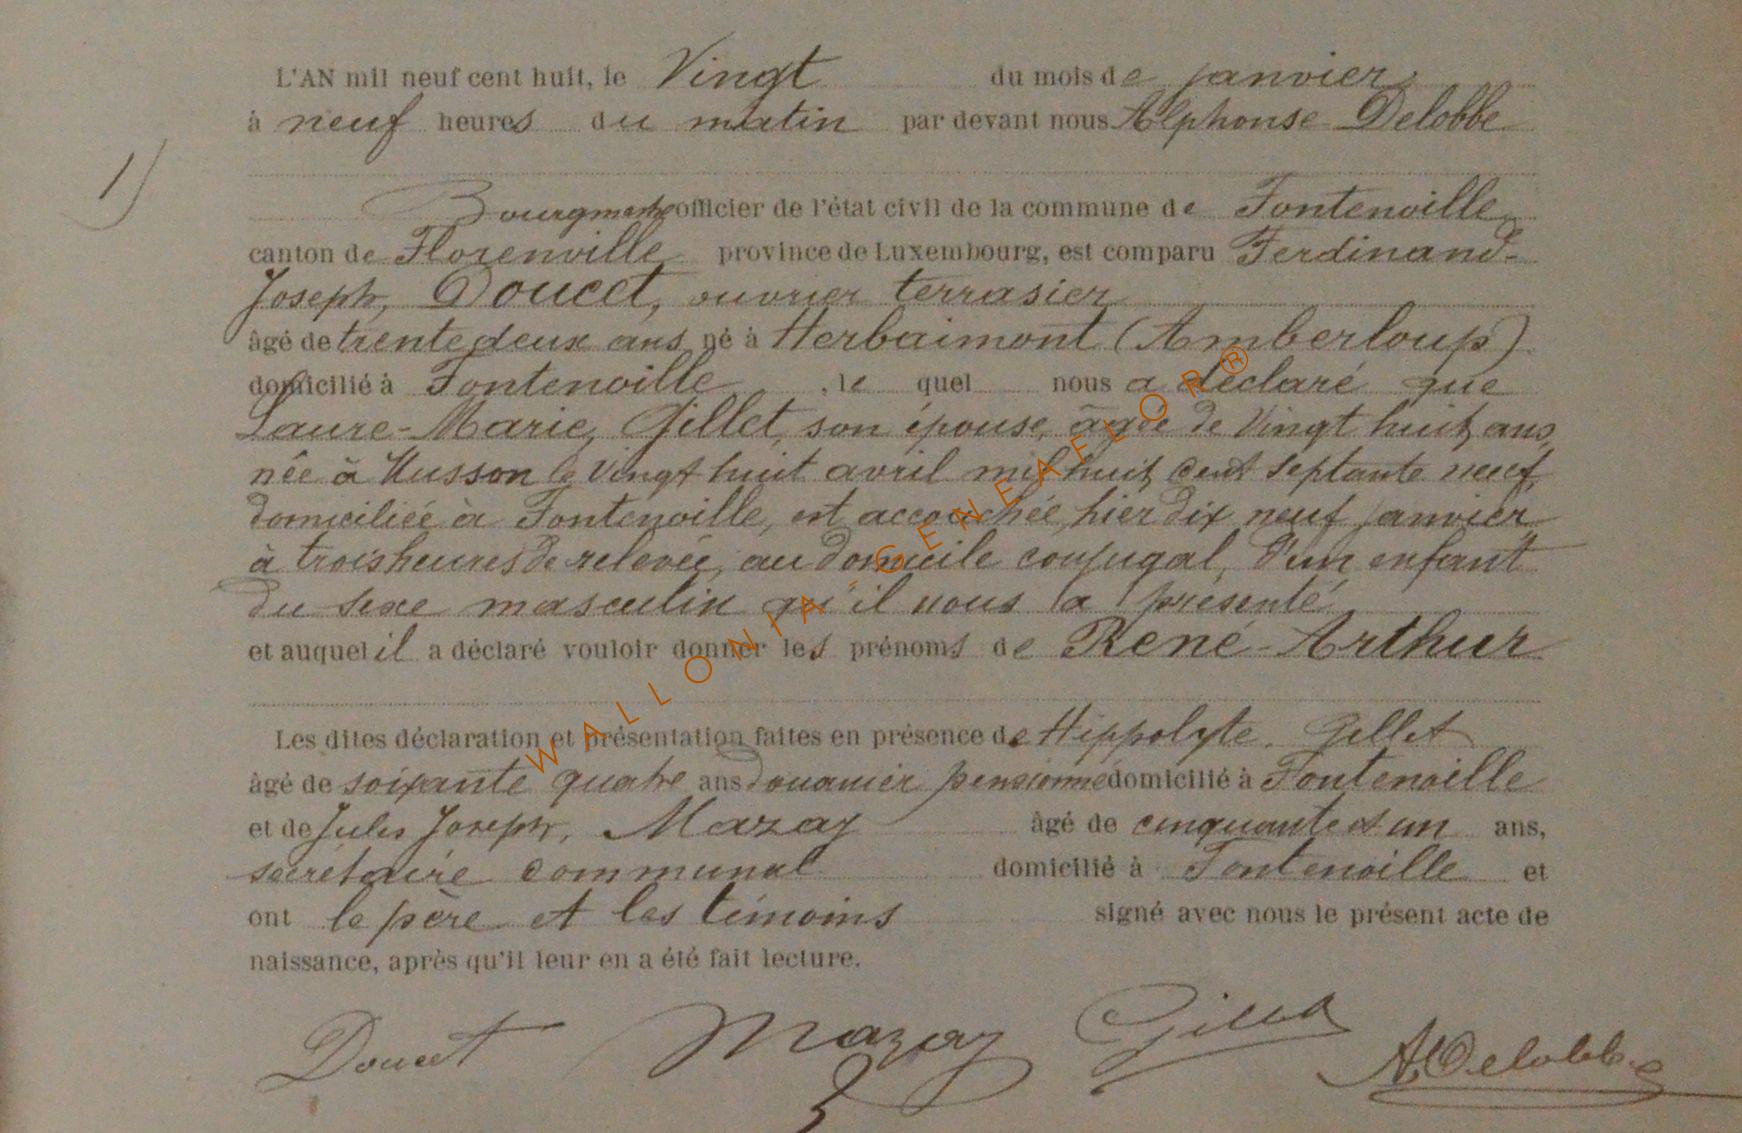 L'AN mil neuf cent huit, le Vingt du mois de janvier
à neuf heures du matin par devant nous Alphonse Delobbe
1)
Bourgmestre officier de l'état civil de la commune de Fontenoille
canton de Florenville province de Luxembourg, est comparu Ferdinand-
Joseph, Doucet, ouvrier terrasier
âgé de trente deux ans né à Herbaimont (Amberloup)
domicilié à Fontenoille, le quel nous a déclaré que
Laure-Marie, Gillet, son épouse, âgée de Vingt huit ans,
née à Musson le Vingt huit avril mil huit cent septante neuf,
domiciliée à Fontenoille, est accouchée, hier dix neuf janvier
à trois heures de relevée, au domicile conjugal, d'un enfant
du sexe masculin qu'il nous a présenté
et auquel il a déclaré vouloir donner les prénoms de René-Arthur
Les dites déclaration et présentation faites en présence de Hippolyte. Gillet
âgé de soixante quatre ans douanier pensionné domicilié à Fontenoille
et de Jules Joseph, Mazay âgé de cinquante et un ans,
secrétaire communal domicilié à Fontenoille et
ont le père et les témoins signé avec nous le présent acte de
naissance, après qu'il leur en a été fait lecture.
Doucet Mazay Gillet ADelobbe
WALLONIA-GENEAFLOR®